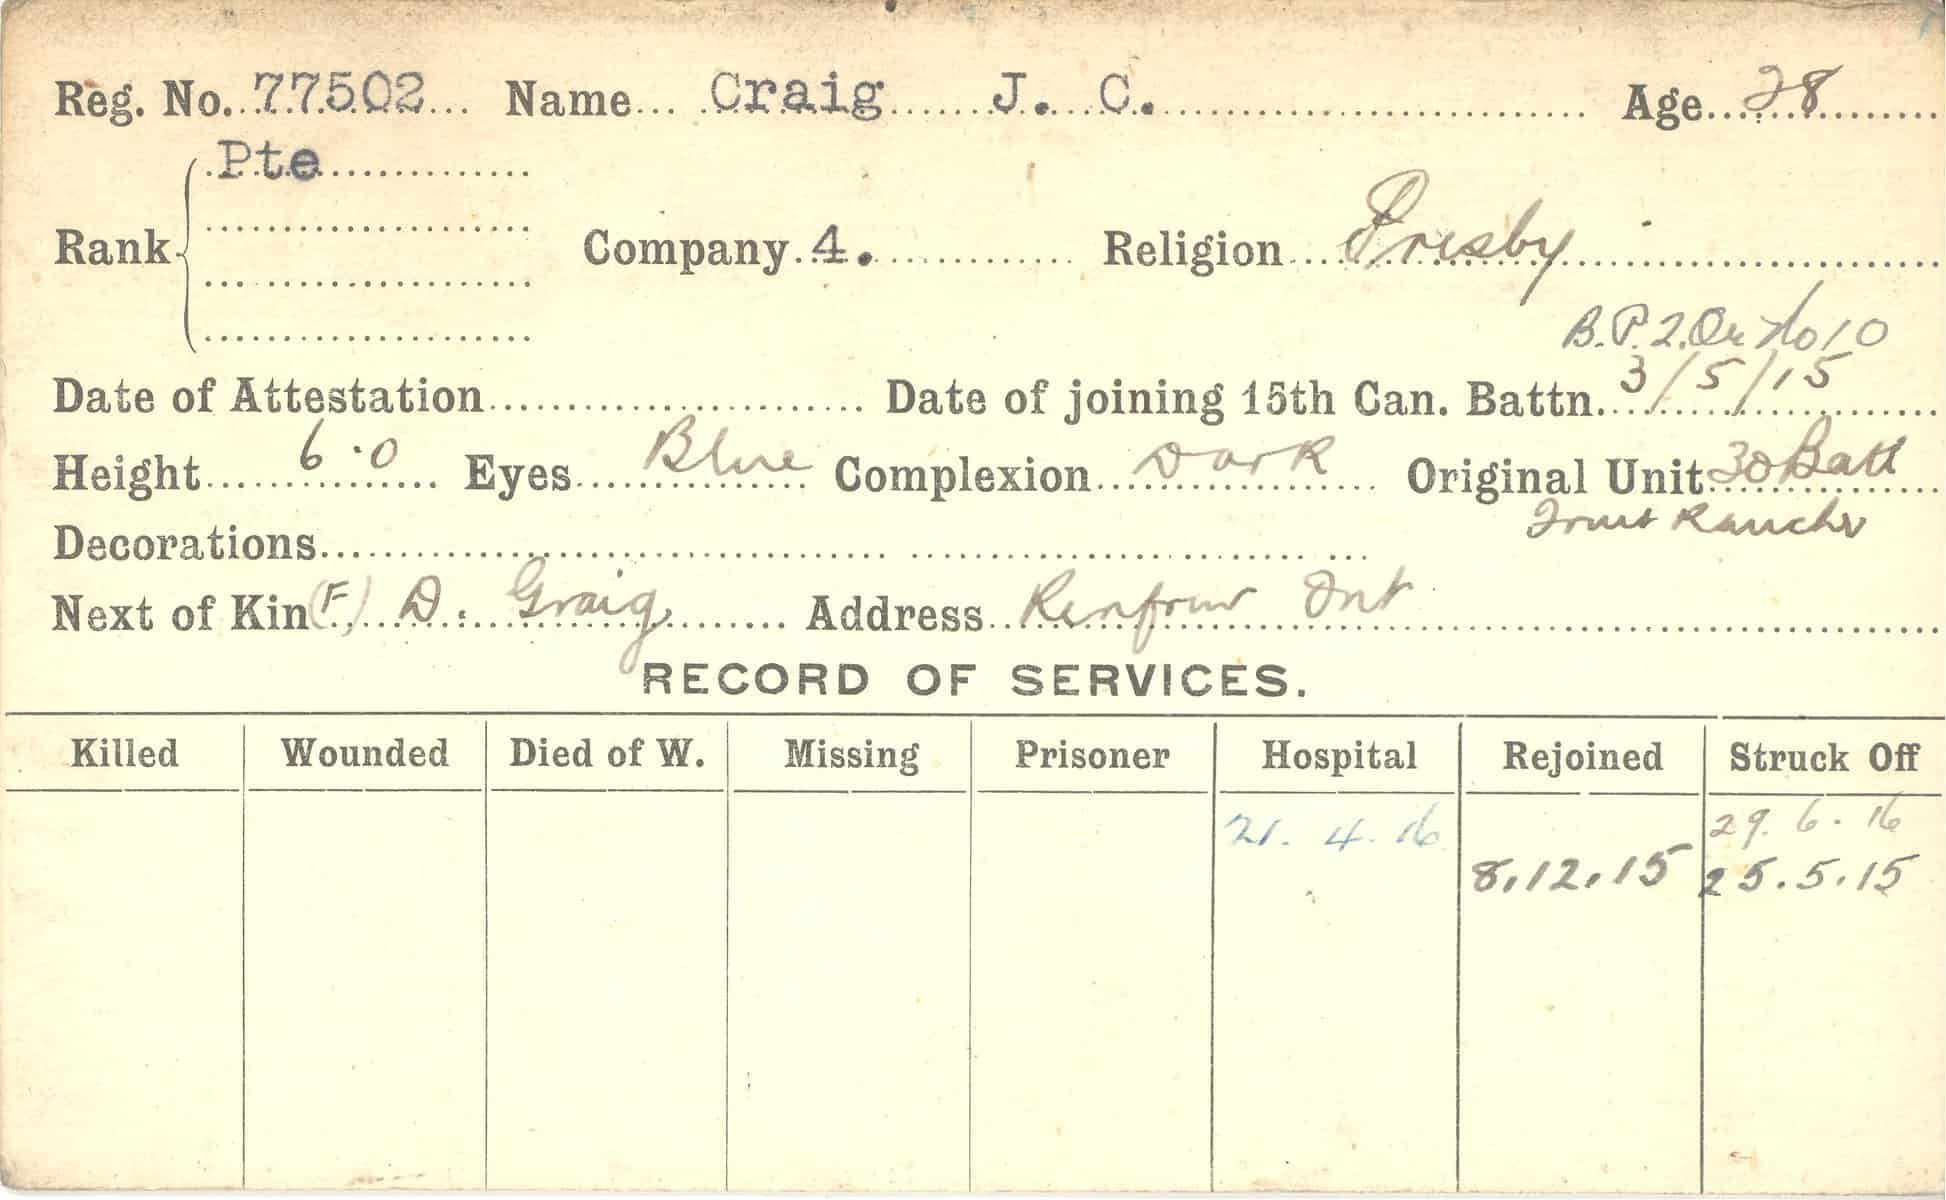 Reg. No. 77502 Name Craig J. C. Age 28
Pte
Rank Company 4. Religion Presby
B.P.2.Or No 10
Date of Attestation Date of joining 15th Can. Battn. 3/5/15
Height 6.0 Eyes Blue Complexion Dark Original Unit 30 Batt
Fruit Rancher
Decorations
Next of Kin (F) D. Graig Address Renfrew Ont
RECORD OF SERVICES.
Killed Wounded Died of W. Missing Prisoner Hospital Rejoined Struck Off
21. 4. 16 29. 6. 16
8.12.15 25.5.15